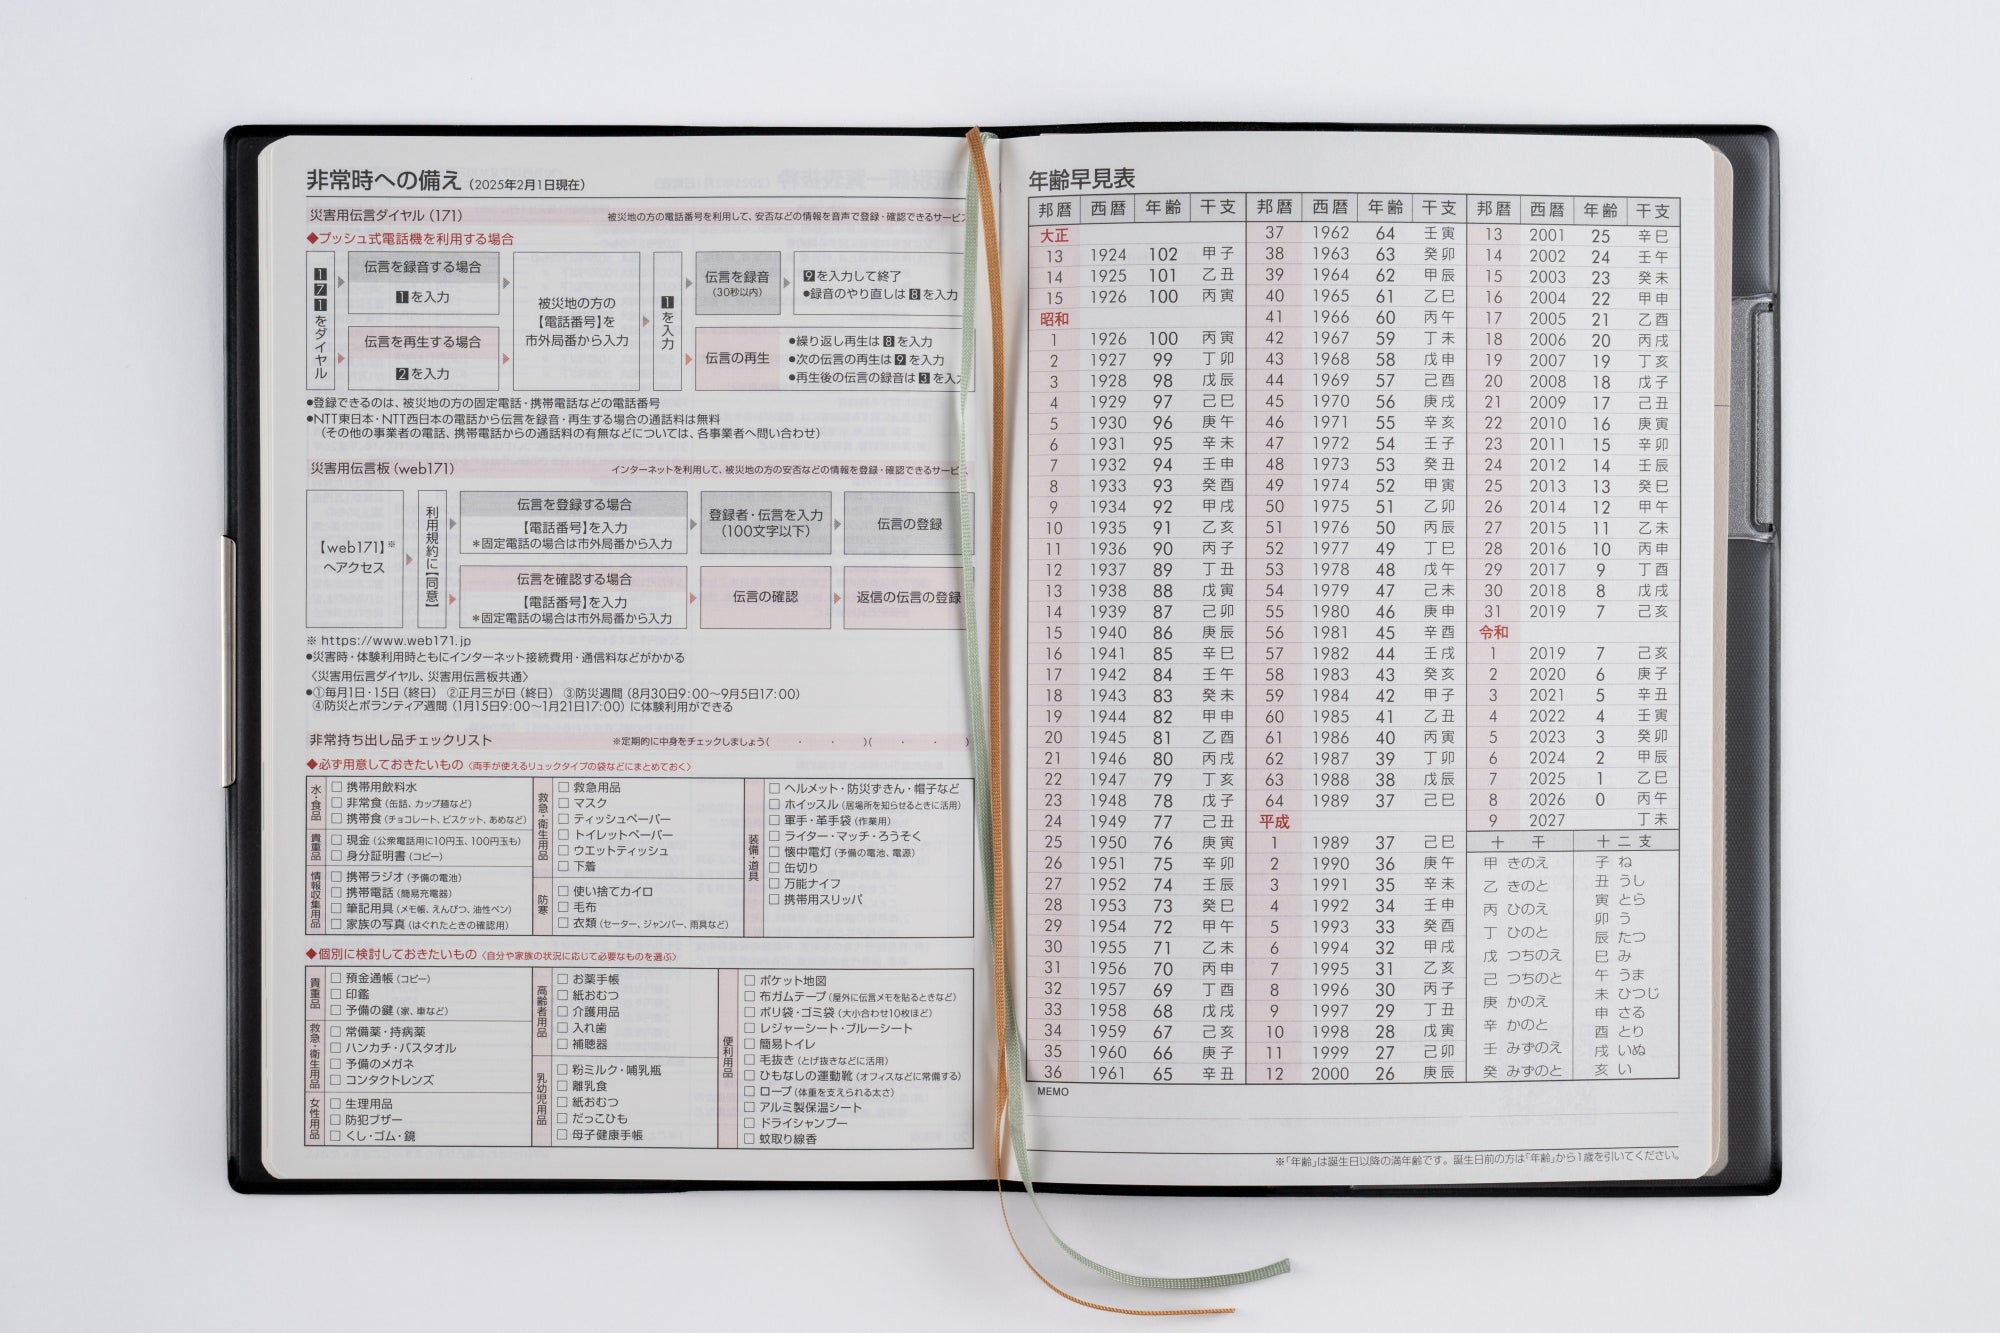 非常時への備え（2025年2月1日現在）
災害用伝言ダイヤル（171） 被災地の方の電話番号を利用して、安否などの情報を音声で登録・確認できるサービス
◆プッシュ式電話機を利用する場合
171をダイヤル
伝言を録音する場合
1を入力
伝言を再生する場合
2を入力
被災地の方の
【電話番号】を
市外局番から入力
1を入力
伝言を録音
（30秒以内）
9を入力して終了
●録音のやり直しは8を入力
伝言の再生
●繰り返し再生は8を入力
●次の伝言の再生は9を入力
●再生後の伝言の録音は3を入力
●登録できるのは、被災地の方の固定電話・携帯電話などの電話番号
●NTT東日本・NTT西日本の電話から伝言を録音・再生する場合の通話料は無料
（その他の事業者の電話、携帯電話からの通話料の有無などについては、各事業者へ問い合わせ）
災害用伝言板（web171） インターネットを利用して、被災地の方の安否などの情報を登録・確認できるサービス
【web171】※
へアクセス
利用規約に【同意】
伝言を登録する場合
【電話番号】を入力
＊固定電話の場合は市外局番から入力
登録者・伝言を入力
（100文字以下）
伝言の登録
伝言を確認する場合
【電話番号】を入力
＊固定電話の場合は市外局番から入力
伝言の確認
返信の伝言の登録
※ https://www.web171.jp
●災害時・体験利用時ともにインターネット接続費用・通信料などがかかる
〈災害用伝言ダイヤル、災害用伝言板共通〉
●①毎月1日・15日（終日） ②正月三が日（終日） ③防災週間（8月30日9:00〜9月5日17:00）
④防災とボランティア週間（1月15日9:00〜1月21日17:00）に体験利用ができる
非常持ち出し品チェックリスト ※定期的に中身をチェックしましょう（ ・ ・ ）（ ・ ・ ）
◆必ず用意しておきたいもの〈両手が使えるリュックタイプの袋などにまとめておく〉
水・食品
□ 携帯用飲料水
□ 非常食（缶詰、カップ麺など）
□ 携帯食（チョコレート、ビスケット、あめなど）
貴重品
□ 現金（公衆電話用に10円玉、100円玉も）
□ 身分証明書（コピー）
情報収集用品
□ 携帯ラジオ（予備の電池）
□ 携帯電話（簡易充電器）
□ 筆記用具（メモ帳、えんぴつ、油性ペン）
□ 家族の写真（はぐれたときの確認用）
救急・衛生用品
□ 救急用品
□ マスク
□ ティッシュペーパー
□ トイレットペーパー
□ ウエットティッシュ
□ 下着
防寒
□ 使い捨てカイロ
□ 毛布
□ 衣類（セーター、ジャンパー、雨具など）
装備・道具
□ ヘルメット・防災ずきん・帽子など
□ ホイッスル（居場所を知らせるときに活用）
□ 軍手・革手袋（作業用）
□ ライター・マッチ・ろうそく
□ 懐中電灯（予備の電池、電源）
□ 缶切り
□ 万能ナイフ
□ 携帯用スリッパ
◆個別に検討しておきたいもの〈自分や家族の状況に応じて必要なものを選ぶ〉
貴重品
□ 預金通帳（コピー）
□ 印鑑
□ 予備の鍵（家、車など）
救急・衛生用品
□ 常備薬・持病薬
□ ハンカチ・バスタオル
□ 予備のメガネ
□ コンタクトレンズ
女性用品
□ 生理用品
□ 防犯ブザー
□ くし・ゴム・鏡
高齢者用品
□ お薬手帳
□ 紙おむつ
□ 介護用品
□ 入れ歯
□ 補聴器
乳幼児用品
□ 粉ミルク・哺乳瓶
□ 離乳食
□ 紙おむつ
□ だっこひも
□ 母子健康手帳
便利用品
□ ポケット地図
□ 布ガムテープ（屋外に伝言メモを貼るときなど）
□ ポリ袋・ゴミ袋（大小合わせ10枚ほど）
□ レジャーシート・ブルーシート
□ 簡易トイレ
□ 毛抜き（とげ抜きなどに活用）
□ ひもなしの運動靴（オフィスなどに常備する）
□ ロープ（体重を支えられる太さ）
□ アルミ製保温シート
□ ドライシャンプー
□ 蚊取り線香
年齢早見表
邦暦 西暦 年齢 干支
大正
13 1924 102 甲子
14 1925 101 乙丑
15 1926 100 丙寅
昭和
1 1926 100 丙寅
2 1927 99 丁卯
3 1928 98 戊辰
4 1929 97 己巳
5 1930 96 庚午
6 1931 95 辛未
7 1932 94 壬申
8 1933 93 癸酉
9 1934 92 甲戌
10 1935 91 乙亥
11 1936 90 丙子
12 1937 89 丁丑
13 1938 88 戊寅
14 1939 87 己卯
15 1940 86 庚辰
16 1941 85 辛巳
17 1942 84 壬午
18 1943 83 癸未
19 1944 82 甲申
20 1945 81 乙酉
21 1946 80 丙戌
22 1947 79 丁亥
23 1948 78 戊子
24 1949 77 己丑
25 1950 76 庚寅
26 1951 75 辛卯
27 1952 74 壬辰
28 1953 73 癸巳
29 1954 72 甲午
30 1955 71 乙未
31 1956 70 丙申
32 1957 69 丁酉
33 1958 68 戊戌
34 1959 67 己亥
35 1960 66 庚子
36 1961 65 辛丑
邦暦 西暦 年齢 干支
37 1962 64 壬寅
38 1963 63 癸卯
39 1964 62 甲辰
40 1965 61 乙巳
41 1966 60 丙午
42 1967 59 丁未
43 1968 58 戊申
44 1969 57 己酉
45 1970 56 庚戌
46 1971 55 辛亥
47 1972 54 壬子
48 1973 53 癸丑
49 1974 52 甲寅
50 1975 51 乙卯
51 1976 50 丙辰
52 1977 49 丁巳
53 1978 48 戊午
54 1979 47 己未
55 1980 46 庚申
56 1981 45 辛酉
57 1982 44 壬戌
58 1983 43 癸亥
59 1984 42 甲子
60 1985 41 乙丑
61 1986 40 丙寅
62 1987 39 丁卯
63 1988 38 戊辰
64 1989 37 己巳
平成
1 1989 37 己巳
2 1990 36 庚午
3 1991 35 辛未
4 1992 34 壬申
5 1993 33 癸酉
6 1994 32 甲戌
7 1995 31 乙亥
8 1996 30 丙子
9 1997 29 丁丑
10 1998 28 戊寅
11 1999 27 己卯
12 2000 26 庚辰
邦暦 西暦 年齢 干支
13 2001 25 辛巳
14 2002 24 壬午
15 2003 23 癸未
16 2004 22 甲申
17 2005 21 乙酉
18 2006 20 丙戌
19 2007 19 丁亥
20 2008 18 戊子
21 2009 17 己丑
22 2010 16 庚寅
23 2011 15 辛卯
24 2012 14 壬辰
25 2013 13 癸巳
26 2014 12 甲午
27 2015 11 乙未
28 2016 10 丙申
29 2017 9 丁酉
30 2018 8 戊戌
31 2019 7 己亥
令和
1 2019 7 己亥
2 2020 6 庚子
3 2021 5 辛丑
4 2022 4 壬寅
5 2023 3 癸卯
6 2024 2 甲辰
7 2025 1 乙巳
8 2026 0 丙午
9 2027 丁未
十干
甲 きのえ
乙 きのと
丙 ひのえ
丁 ひのと
戊 つちのえ
己 つちのと
庚 かのえ
辛 かのと
壬 みずのえ
癸 みずのと
十二支
子 ね
丑 うし
寅 とら
卯 う
辰 たつ
巳 み
午 うま
未 ひつじ
申 さる
酉 とり
戌 いぬ
亥 い
MEMO
※「年齢」は誕生日以降の満年齢です。誕生日前の方は「年齢」から1歳を引いてください。